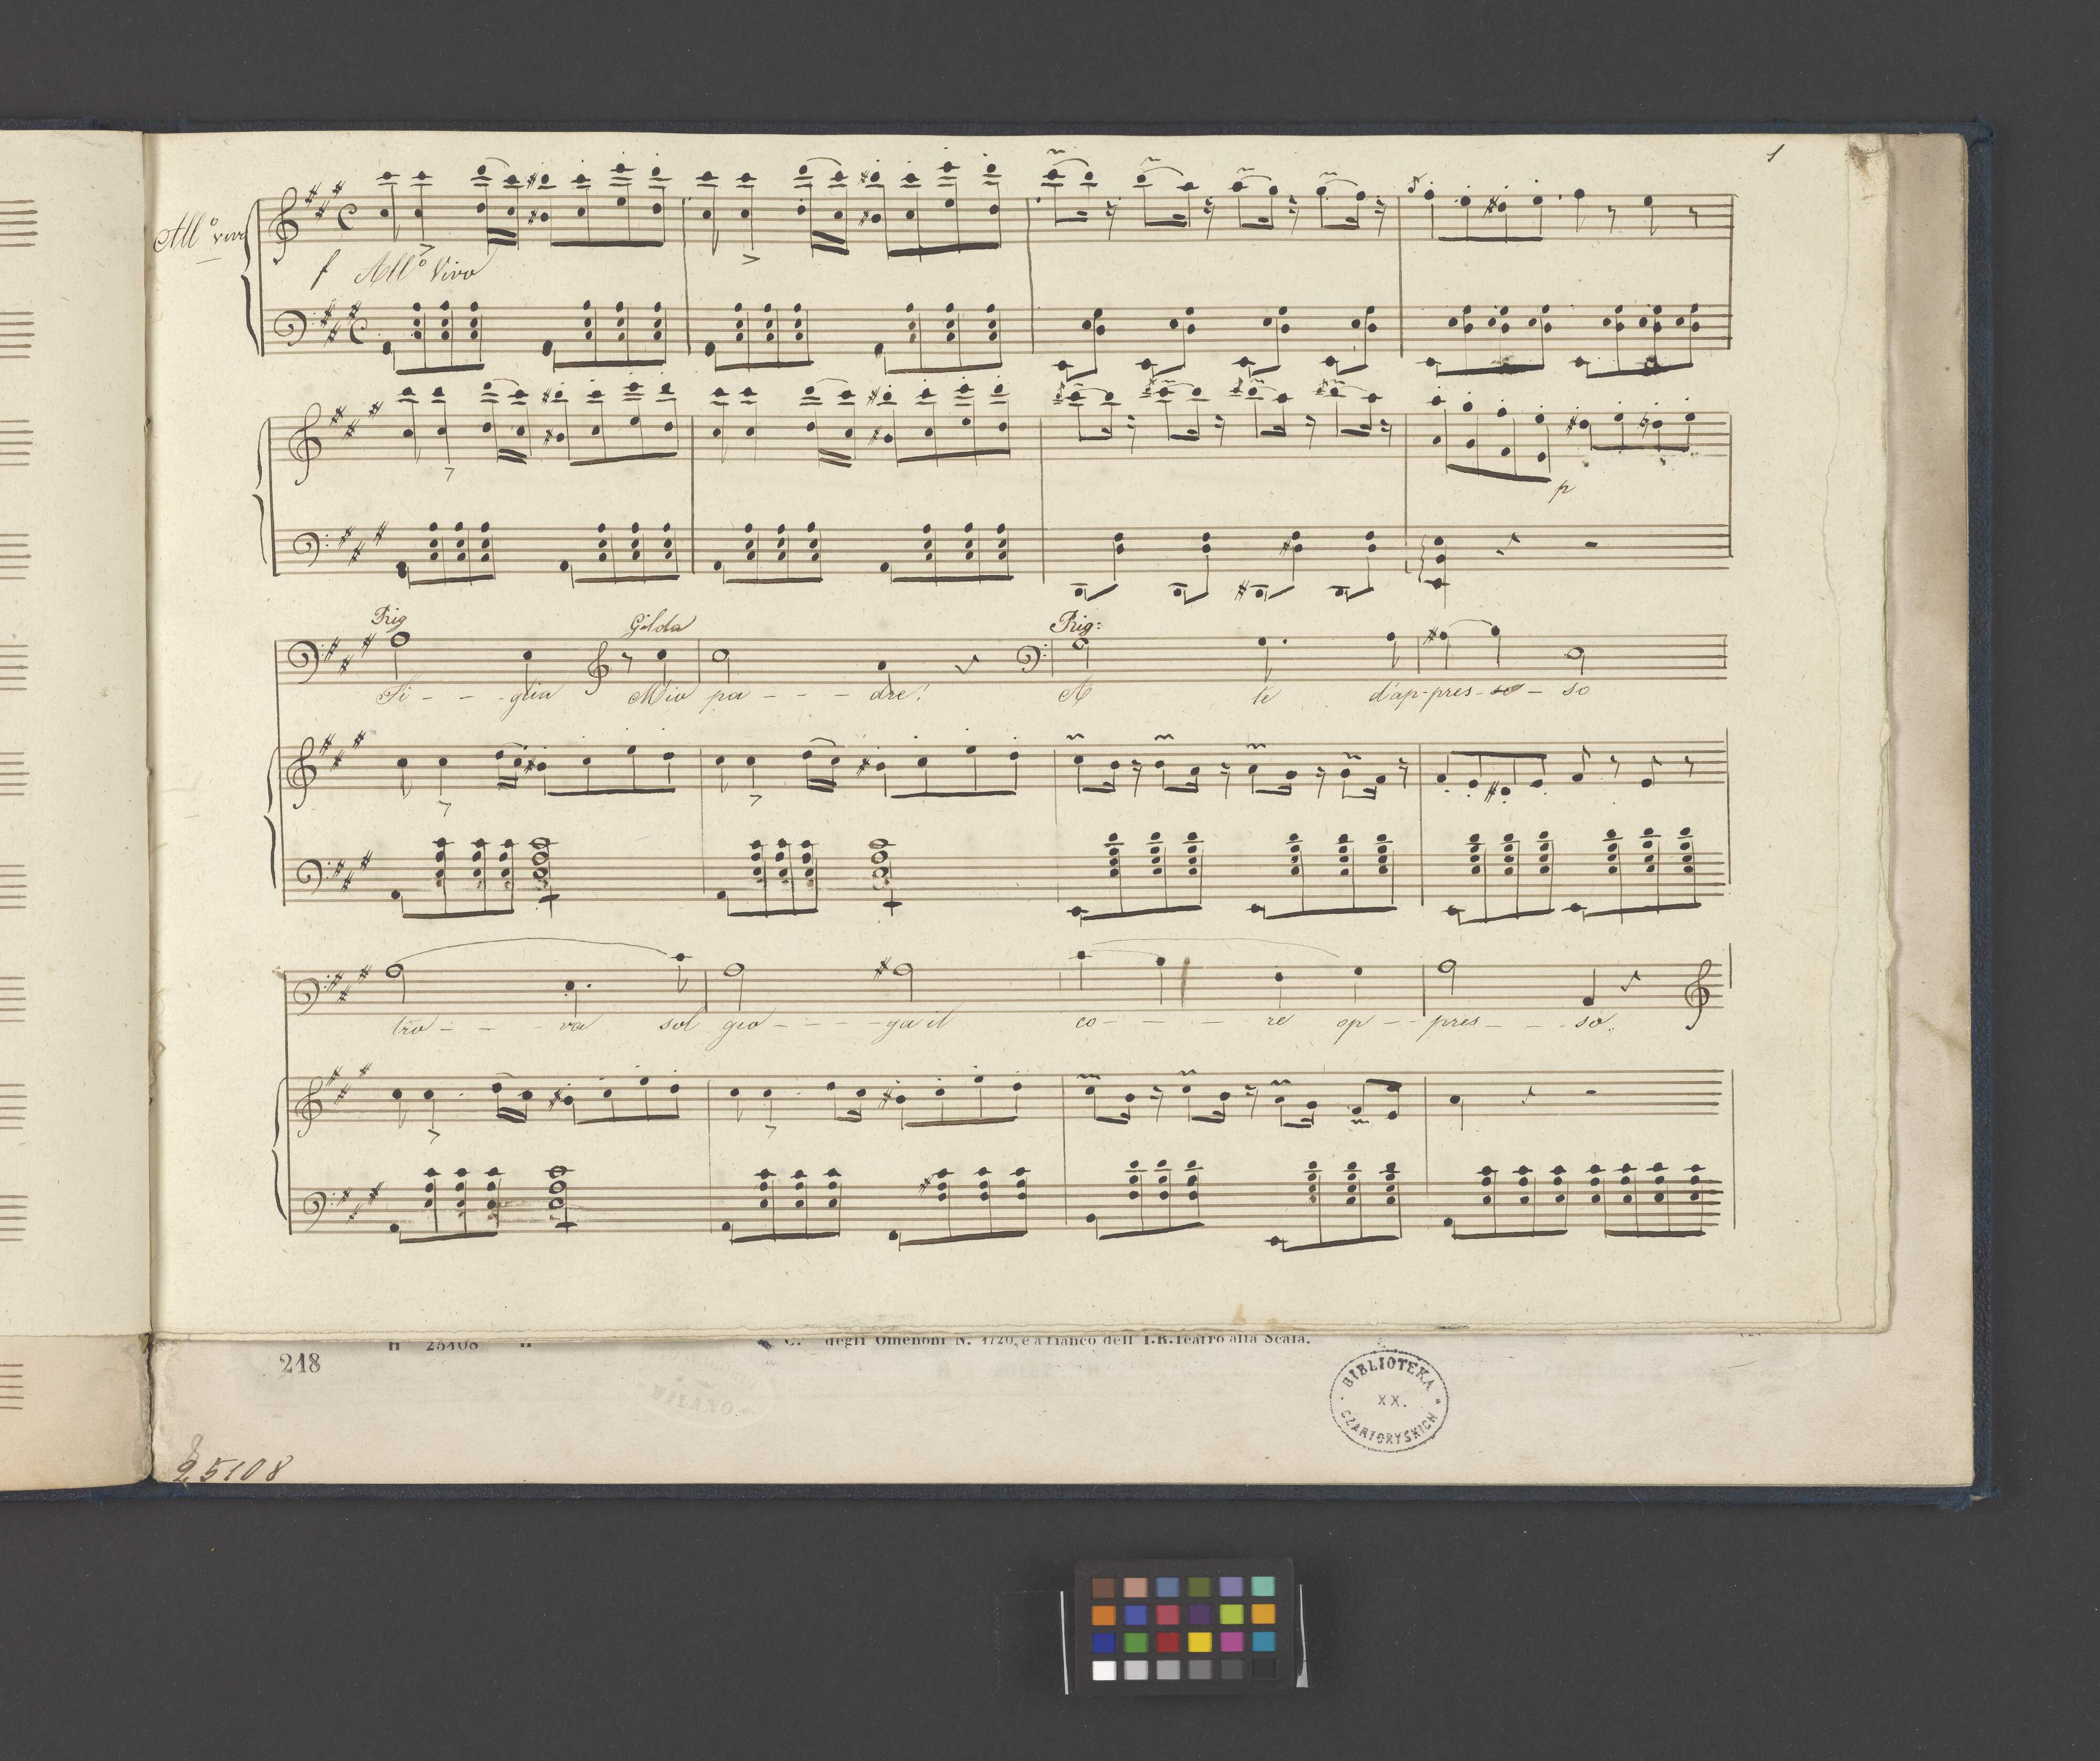 1
All.o vivo
f All.o Vivo
p
Rig Gilda Rig:
Fi - - - glia Mio pa - - - dre! A te d'ap - pres - so - so
tro - - - va sol gio - - - - ga il co - - - re op - - pres - - - so.
H 25108 H degli Omenoni N. 1720, e a fianco dell' I.R. Teatro alla Scala.
218
MILANO
BIBLIOTEKA
XX.
CZARTORYSKICH
25108